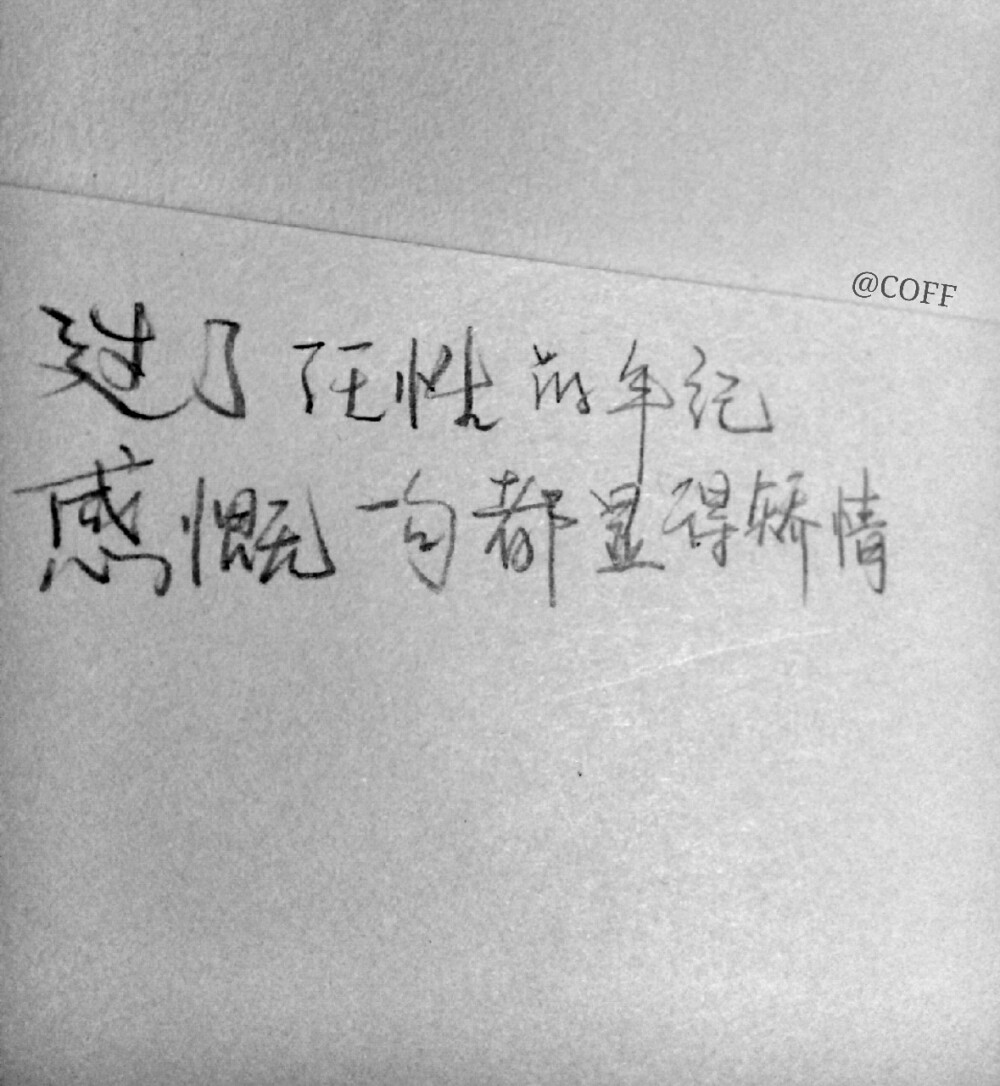 @COFF
过了任性的年纪
感慨一句都显得矫情